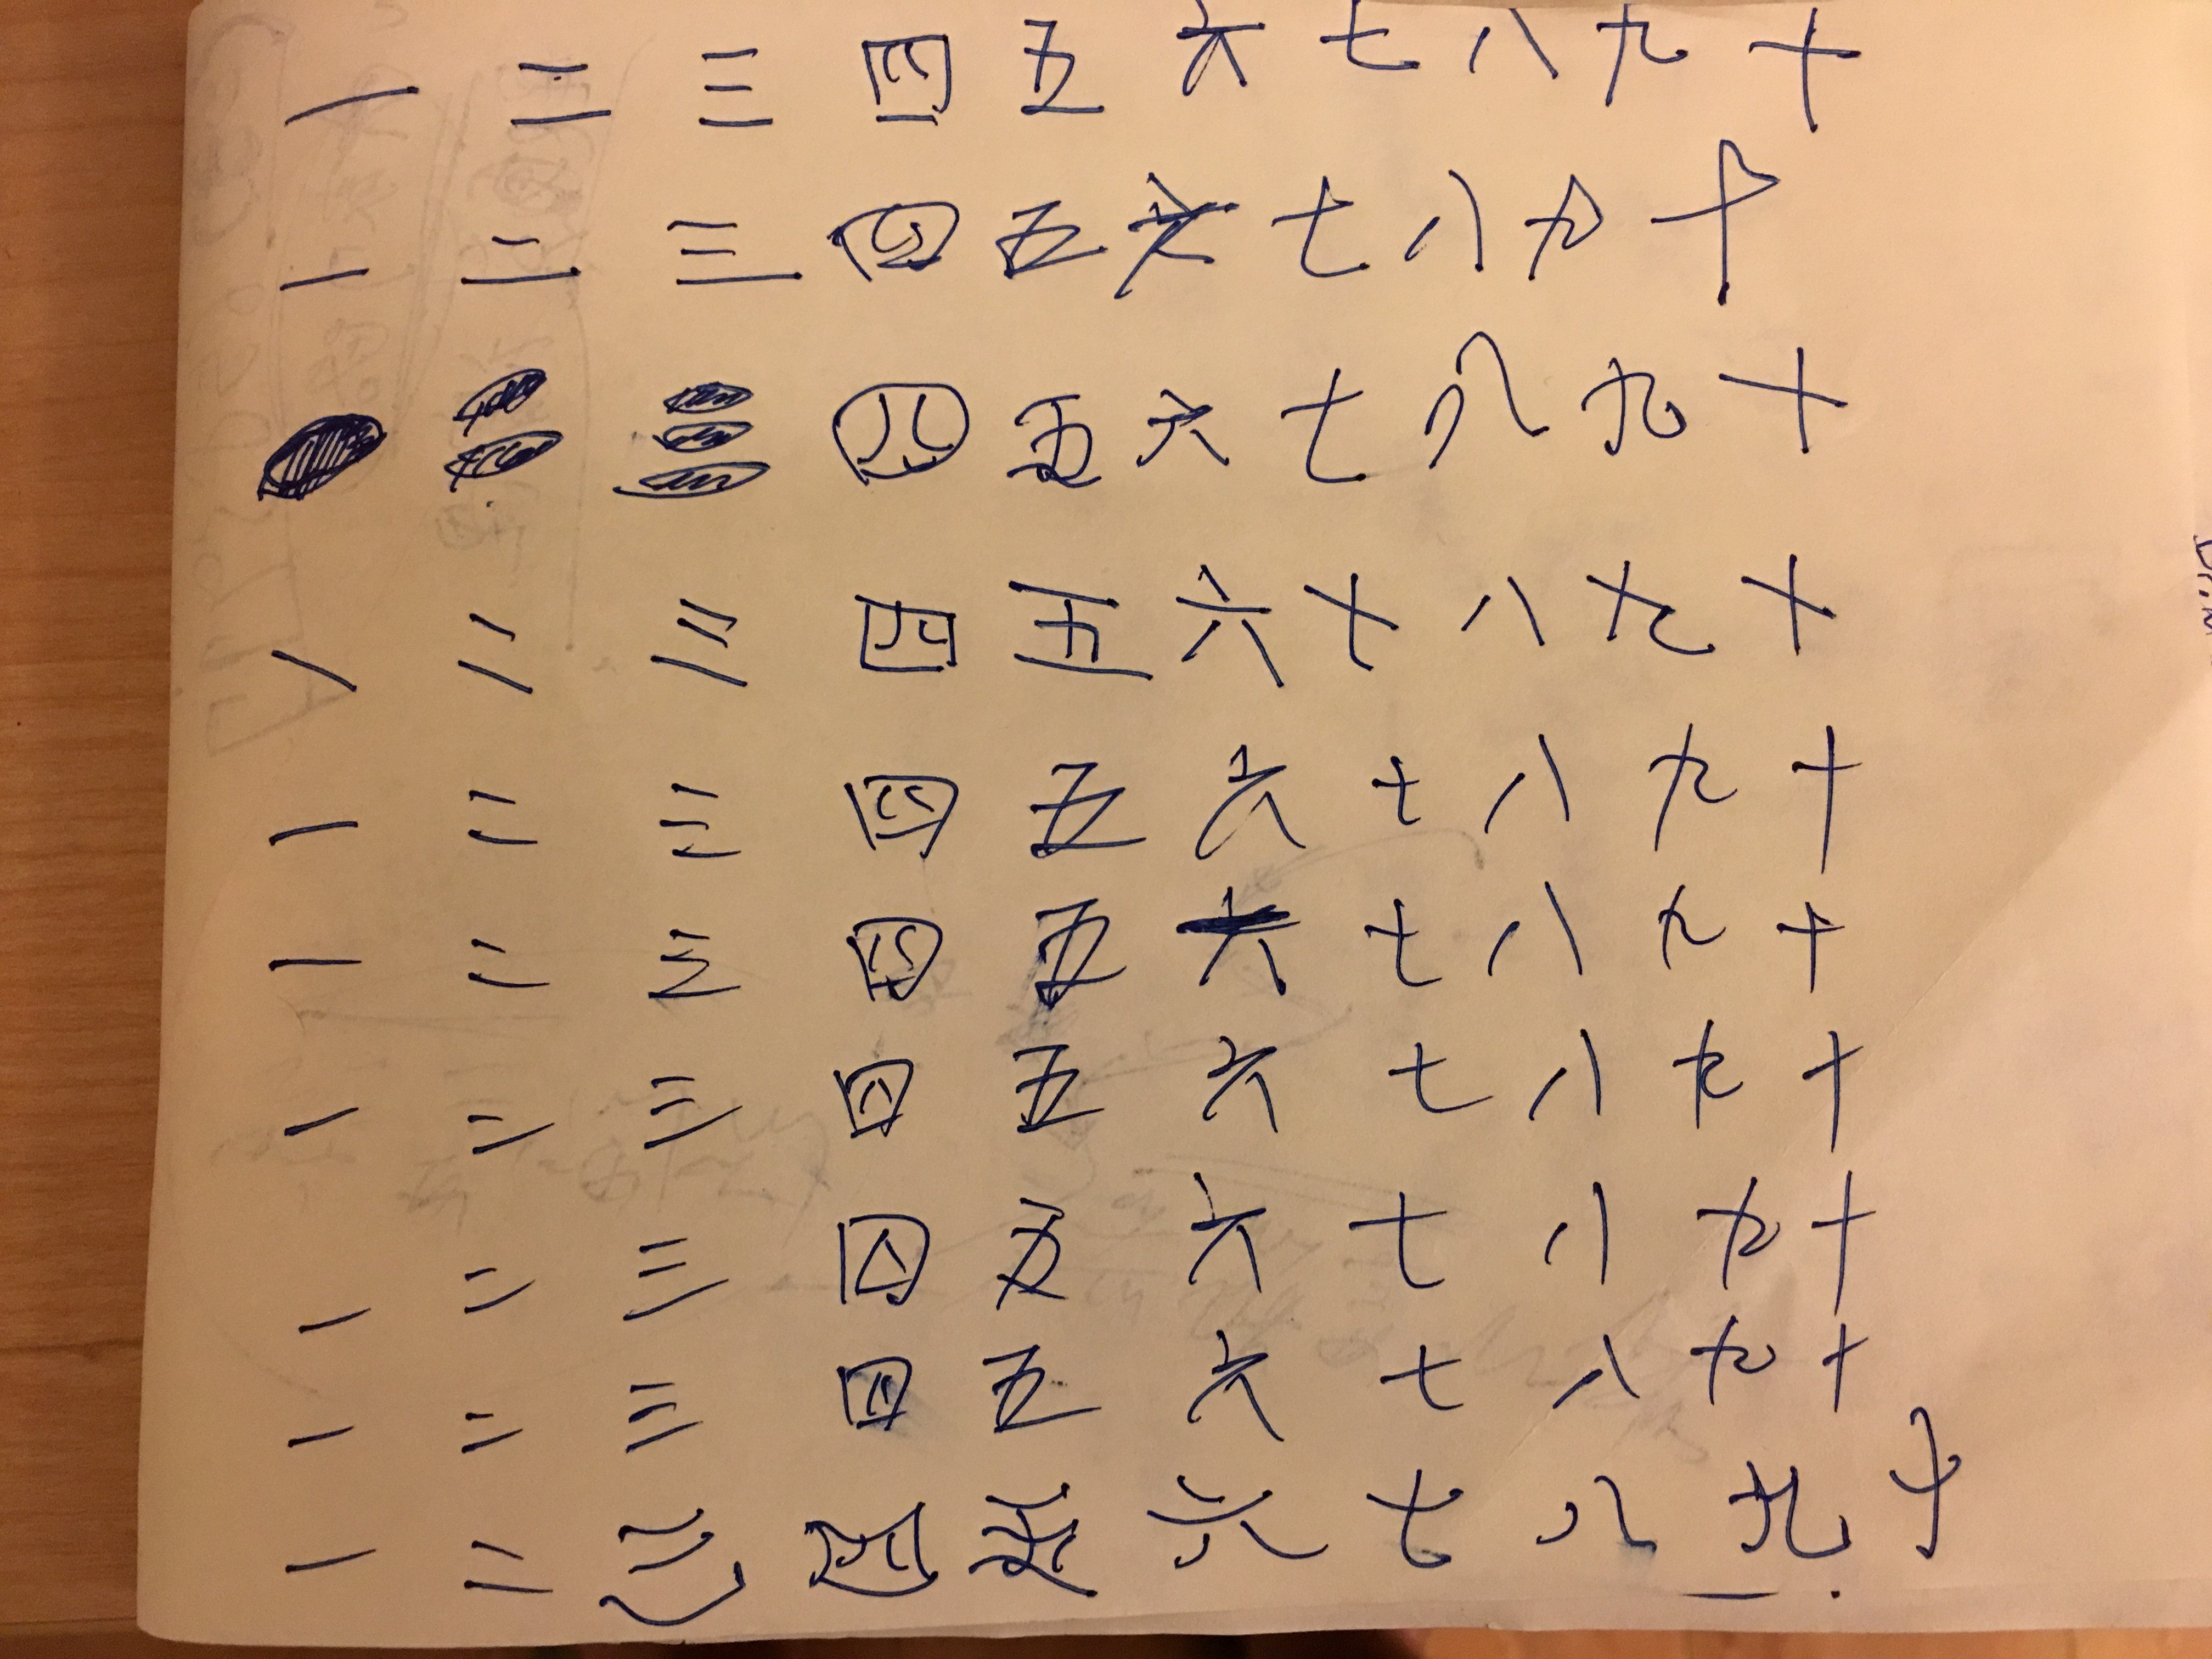 一 二 三 四 五 六 七 八 九 十
一 二 三 四 五 六 七 八 九 十
一 二 三 四 五 六 七 八 九 十
一 二 三 四 五 六 七 八 九 十
一 二 三 四 五 六 七 八 九 十
一 二 三 四 五 六 七 八 九 十
一 二 三 四 五 六 七 八 九 十
一 二 三 四 五 六 七 八 九 十
一 二 三 四 五 六 七 八 九 十
一 二 三 四 五 六 七 八 九 十